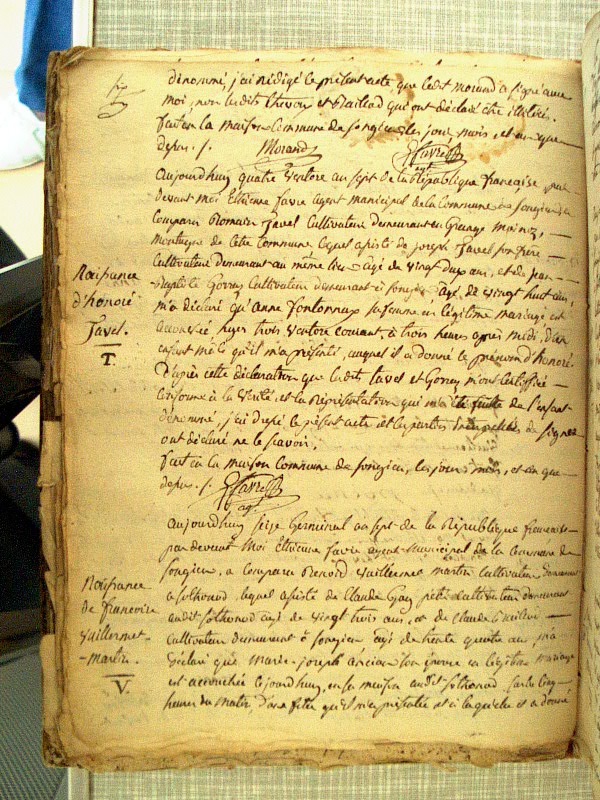 dénommé, j'ai rédigé le présent acte, que ledit morand a signé avec
moi, non lesdits thevoz et Bailliod qui ont déclaré etre illitérés.
fait en la maison Commune de songieu les jour, mois, et an que
dessus. /. Morand Favre
agt
aujourdhuy quatre ventôse an sept de la République française, par
devant Moi Etienne favre agent municipal de la Commune de Songieu a
Comparu Romain Javel Cultivateur demeurant en Grange
montagne de cette Commune lequel assisté de joseph Javel son frère
Cultivateur demeurant au même lieu agé de vingt deux ans, et de jean
Baptiste Gonay Cultivateur demeurant à songieu agé de vingt huit ans,
m'a déclaré qu'Anne fontonnax sa femme en légitime mariage est
accouchée hyer trois ventôse courant, à trois heures après midi, d'un
enfant mâle qu'il m'a présenté, auquel il a donné le prénom d'honoré.
D'après cette déclaration que lesdits Javel et Gonay m'ont Certiffiée
conforme à la vérité, et la Représentation qui m'a été faite de l'enfant
dénommé, j'ai dressé le présent acte et les parties interpellées de signer
ont déclaré ne le sçavoir.
fait en la maison Commune de songieu, les jour, mois, et an que
dessus. /. Favre
agt
Naissance
d'honoré
Javel.
T.
aujourdhuy seize Germinal an sept de la République française
par devant Moi Etienne favre agent Municipal de la Commune de
songieu, a Comparu Benoid vuillermet martin Cultivateur demeurant
a sothonod lequel assisté de Claude Gay Cultivateur demeurant
audit sothonod agé de vingt trois ans, et de Claude
Cultivateur demeurant à songieu agé de trente quatre ans, m'a
déclaré que Marie-joseph ancian son épouse en légitime mariage
est accouchée cejourdhuy, en sa maison audit sothonod sur les cinq
heures du matin, d'une fille qu'il m'a présentée et à laquelle il a donné
Naissance
de francoise
vuillermet
-martin.
V.